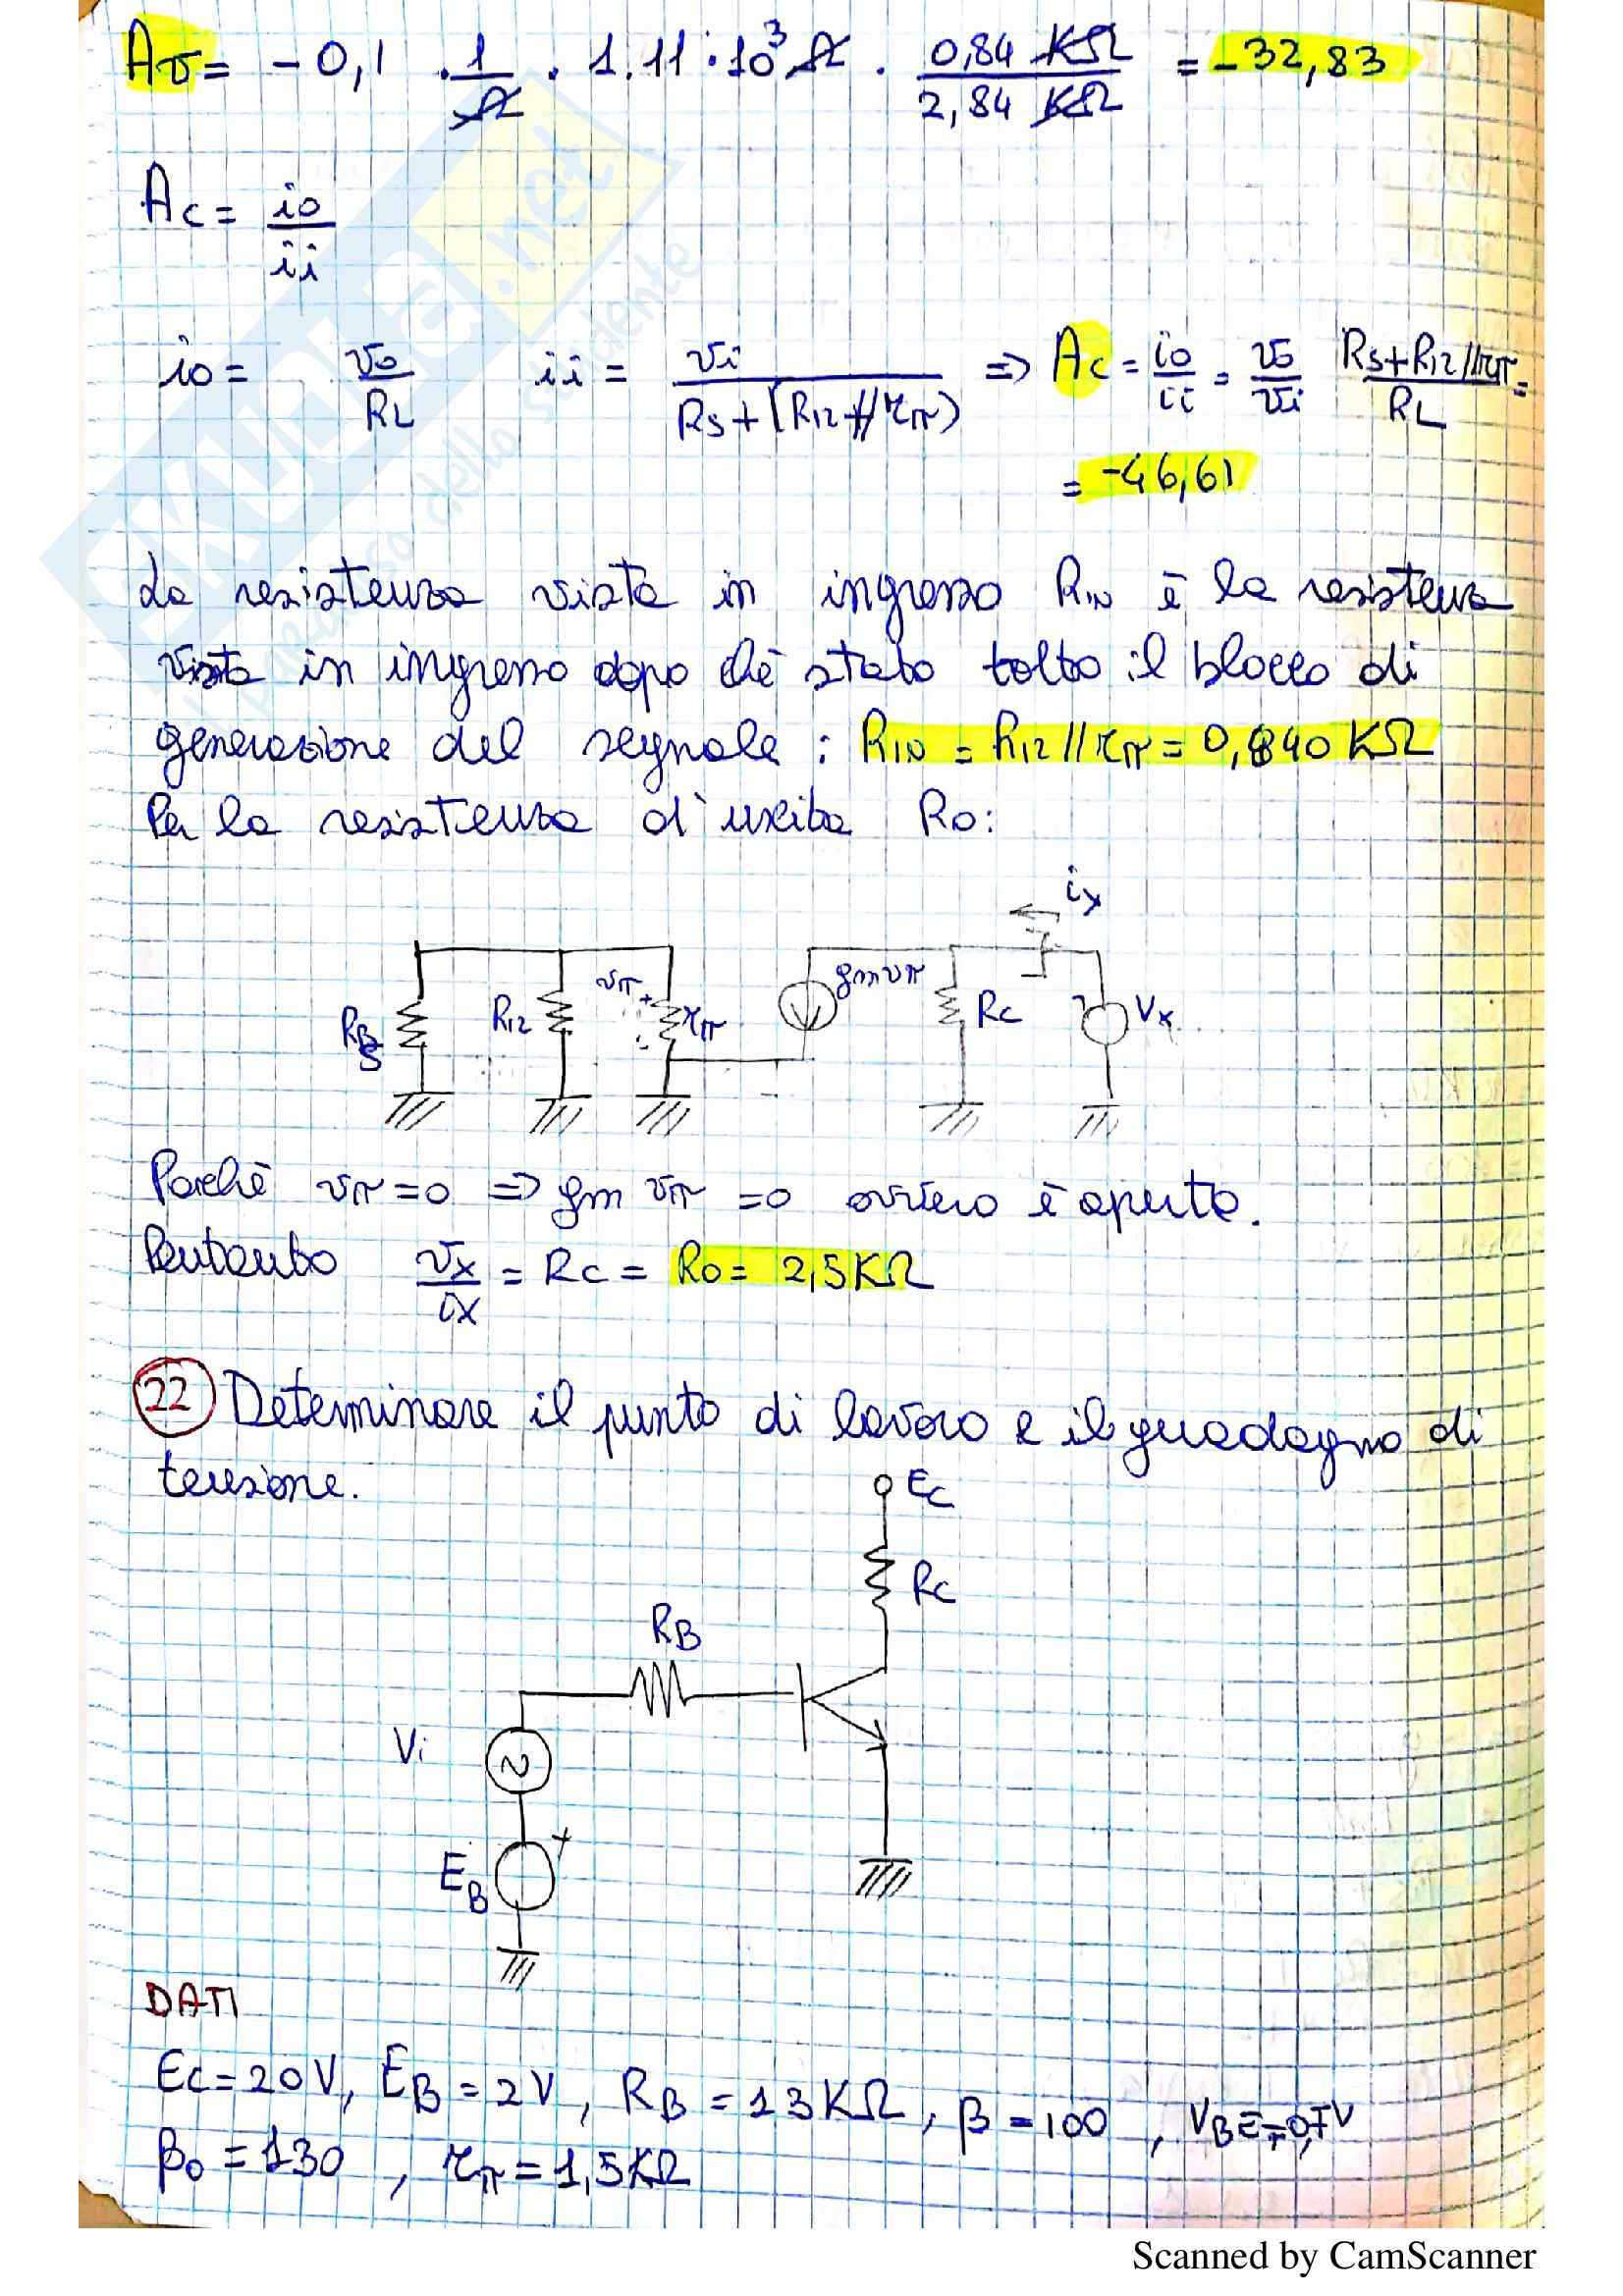 Av = -0,1 · 1/Ω · 1.11·10³ Ω · 0,84 KΩ / 2,84 KΩ = -32,83
Ac = io / ii
io = vo / RL    ii = vi / Rs+(R12//rπ) => Ac = io/ii = vo/vi Rs+R12//rπ / RL =
= -46,61
La resistenza vista in ingresso RIN è la resistenza
vista in ingresso dopo ch'è stato tolto il blocco di
generazione del segnale : RIN = R12//rπ = 0,840 KΩ
Per la resistenza d'uscita Ro:
ix
RS R12 vπ + - rπ gmvπ RC Vx
Poichè vπ=0 => gm vπ =0 ovvero è aperto.
Pertanto vx/ix = RC = Ro = 2,5KΩ
22 Determinare il punto di lavoro e il guadagno di
tensione.
EC
RC
RB
Vi
EB +
DATI
EC=20V, EB=2V, RB=13KΩ, β=100,
β0=130, rπ=1,5KΩ
SKUOLA.net
il paradiso dello studente
Scanned by CamScanner